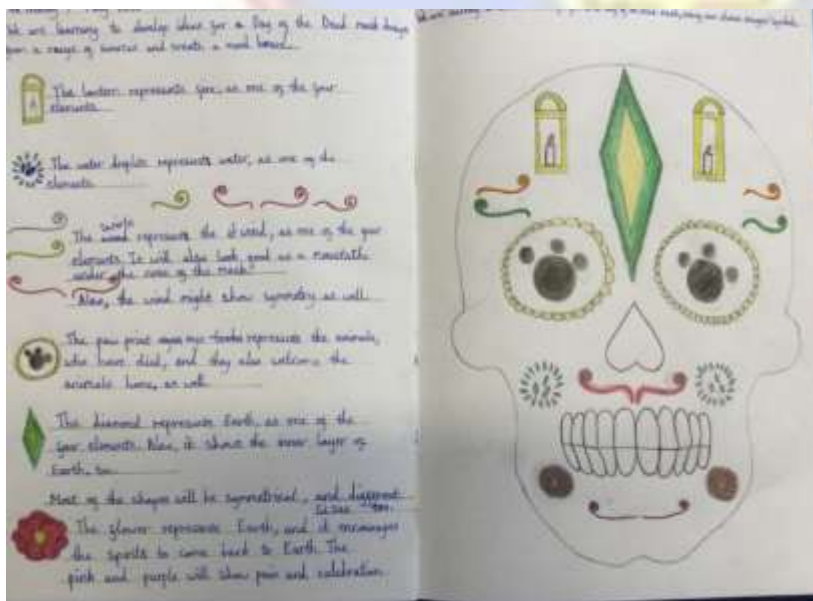 We are learning to develop ideas for a Day of the Dead mask design
from a range of sources and create a mood board.
The lantern represents fire, as one of the four
elements.
The water droplets represents water, as one of the
elements.
The swirls represents the of wind, as one of the four
elements. It will also look good as a moustache
under the nose of the mask.
Also, the wind might show symmetry as well.
The paw print represents the animals,
who have died, and they also welcome the
animals home, as well.
The diamond represents Earth, as one of the
four elements. Also, it shows the inner layer of
Earth, too.
Most of the shapes will be symmetrical, and different
sizes too.
The flower represents Earth, and it encourages
the spirits to come back to Earth. The
pink and purple will show pain and celebration.